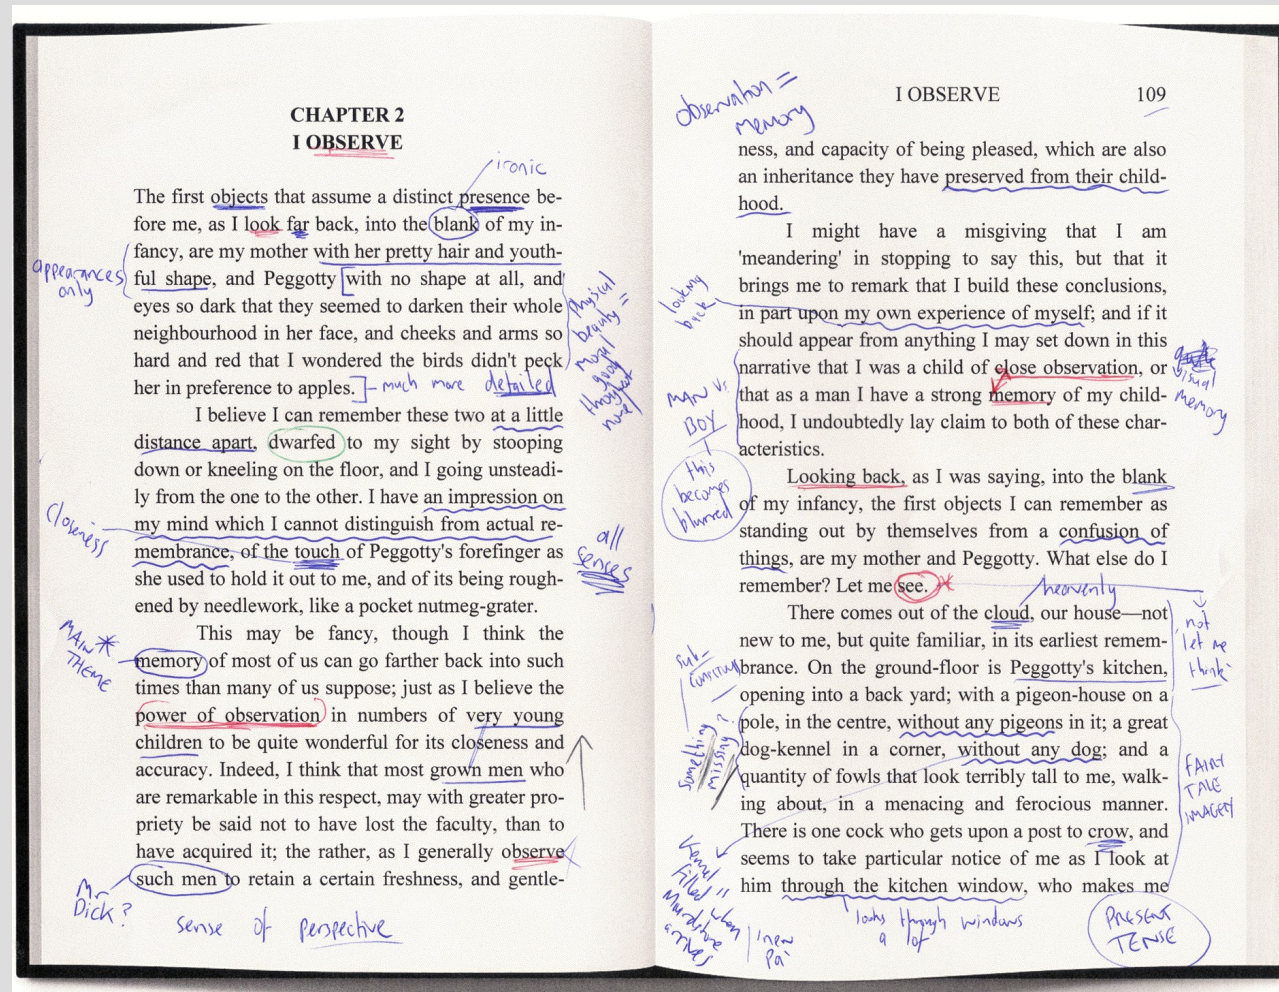 CHAPTER 2
I OBSERVE
ironic
The first objects that assume a distinct presence be-
fore me, as I look far back, into the blank of my in-
fancy, are my mother with her pretty hair and youth-
ful shape, and Peggotty with no shape at all, and
eyes so dark that they seemed to darken their whole
neighbourhood in her face, and cheeks and arms so
hard and red that I wondered the birds didn't peck
her in preference to apples.
much more detailed
appearances
only
physical
beauty =
moral
good
throughout
novel
I believe I can remember these two at a little
distance apart, dwarfed to my sight by stooping
down or kneeling on the floor, and I going unsteadi-
ly from the one to the other. I have an impression on
my mind which I cannot distinguish from actual re-
membrance, of the touch of Peggotty's forefinger as
she used to hold it out to me, and of its being rough-
ened by needlework, like a pocket nutmeg-grater.
closeness
all
senses
This may be fancy, though I think the
memory of most of us can go farther back into such
times than many of us suppose; just as I believe the
power of observation in numbers of very young
children to be quite wonderful for its closeness and
accuracy. Indeed, I think that most grown men who
are remarkable in this respect, may with greater pro-
priety be said not to have lost the faculty, than to
have acquired it; the rather, as I generally observe
such men to retain a certain freshness, and gentle-
MAIN *
THEME
Mr
Dick?
sense of perspective
I OBSERVE
109
observation =
memory
ness, and capacity of being pleased, which are also
an inheritance they have preserved from their child-
hood.
I might have a misgiving that I am
'meandering' in stopping to say this, but that it
brings me to remark that I build these conclusions,
in part upon my own experience of myself; and if it
should appear from anything I may set down in this
narrative that I was a child of close observation, or
that as a man I have a strong memory of my child-
hood, I undoubtedly lay claim to both of these char-
acteristics.
looking
back
MAN VS
BOY
this
becomes
blurred
visual
memory
Looking back, as I was saying, into the blank
of my infancy, the first objects I can remember as
standing out by themselves from a confusion of
things, are my mother and Peggotty. What else do I
remember? Let me see.
heavenly
not
'let me
think'
There comes out of the cloud, our house—not
new to me, but quite familiar, in its earliest remem-
brance. On the ground-floor is Peggotty's kitchen,
opening into a back yard; with a pigeon-house on a
pole, in the centre, without any pigeons in it; a great
dog-kennel in a corner, without any dog; and a
quantity of fowls that look terribly tall to me, walk-
ing about, in a menacing and ferocious manner.
There is one cock who gets upon a post to crow, and
seems to take particular notice of me as I look at
him through the kitchen window, who makes me
something
missing?
FAIRY
TALE
IMAGERY
Kennel
filled
when
Murdstone
arrives
'new
Pa'
looks through windows
a lot
PRESENT
TENSE